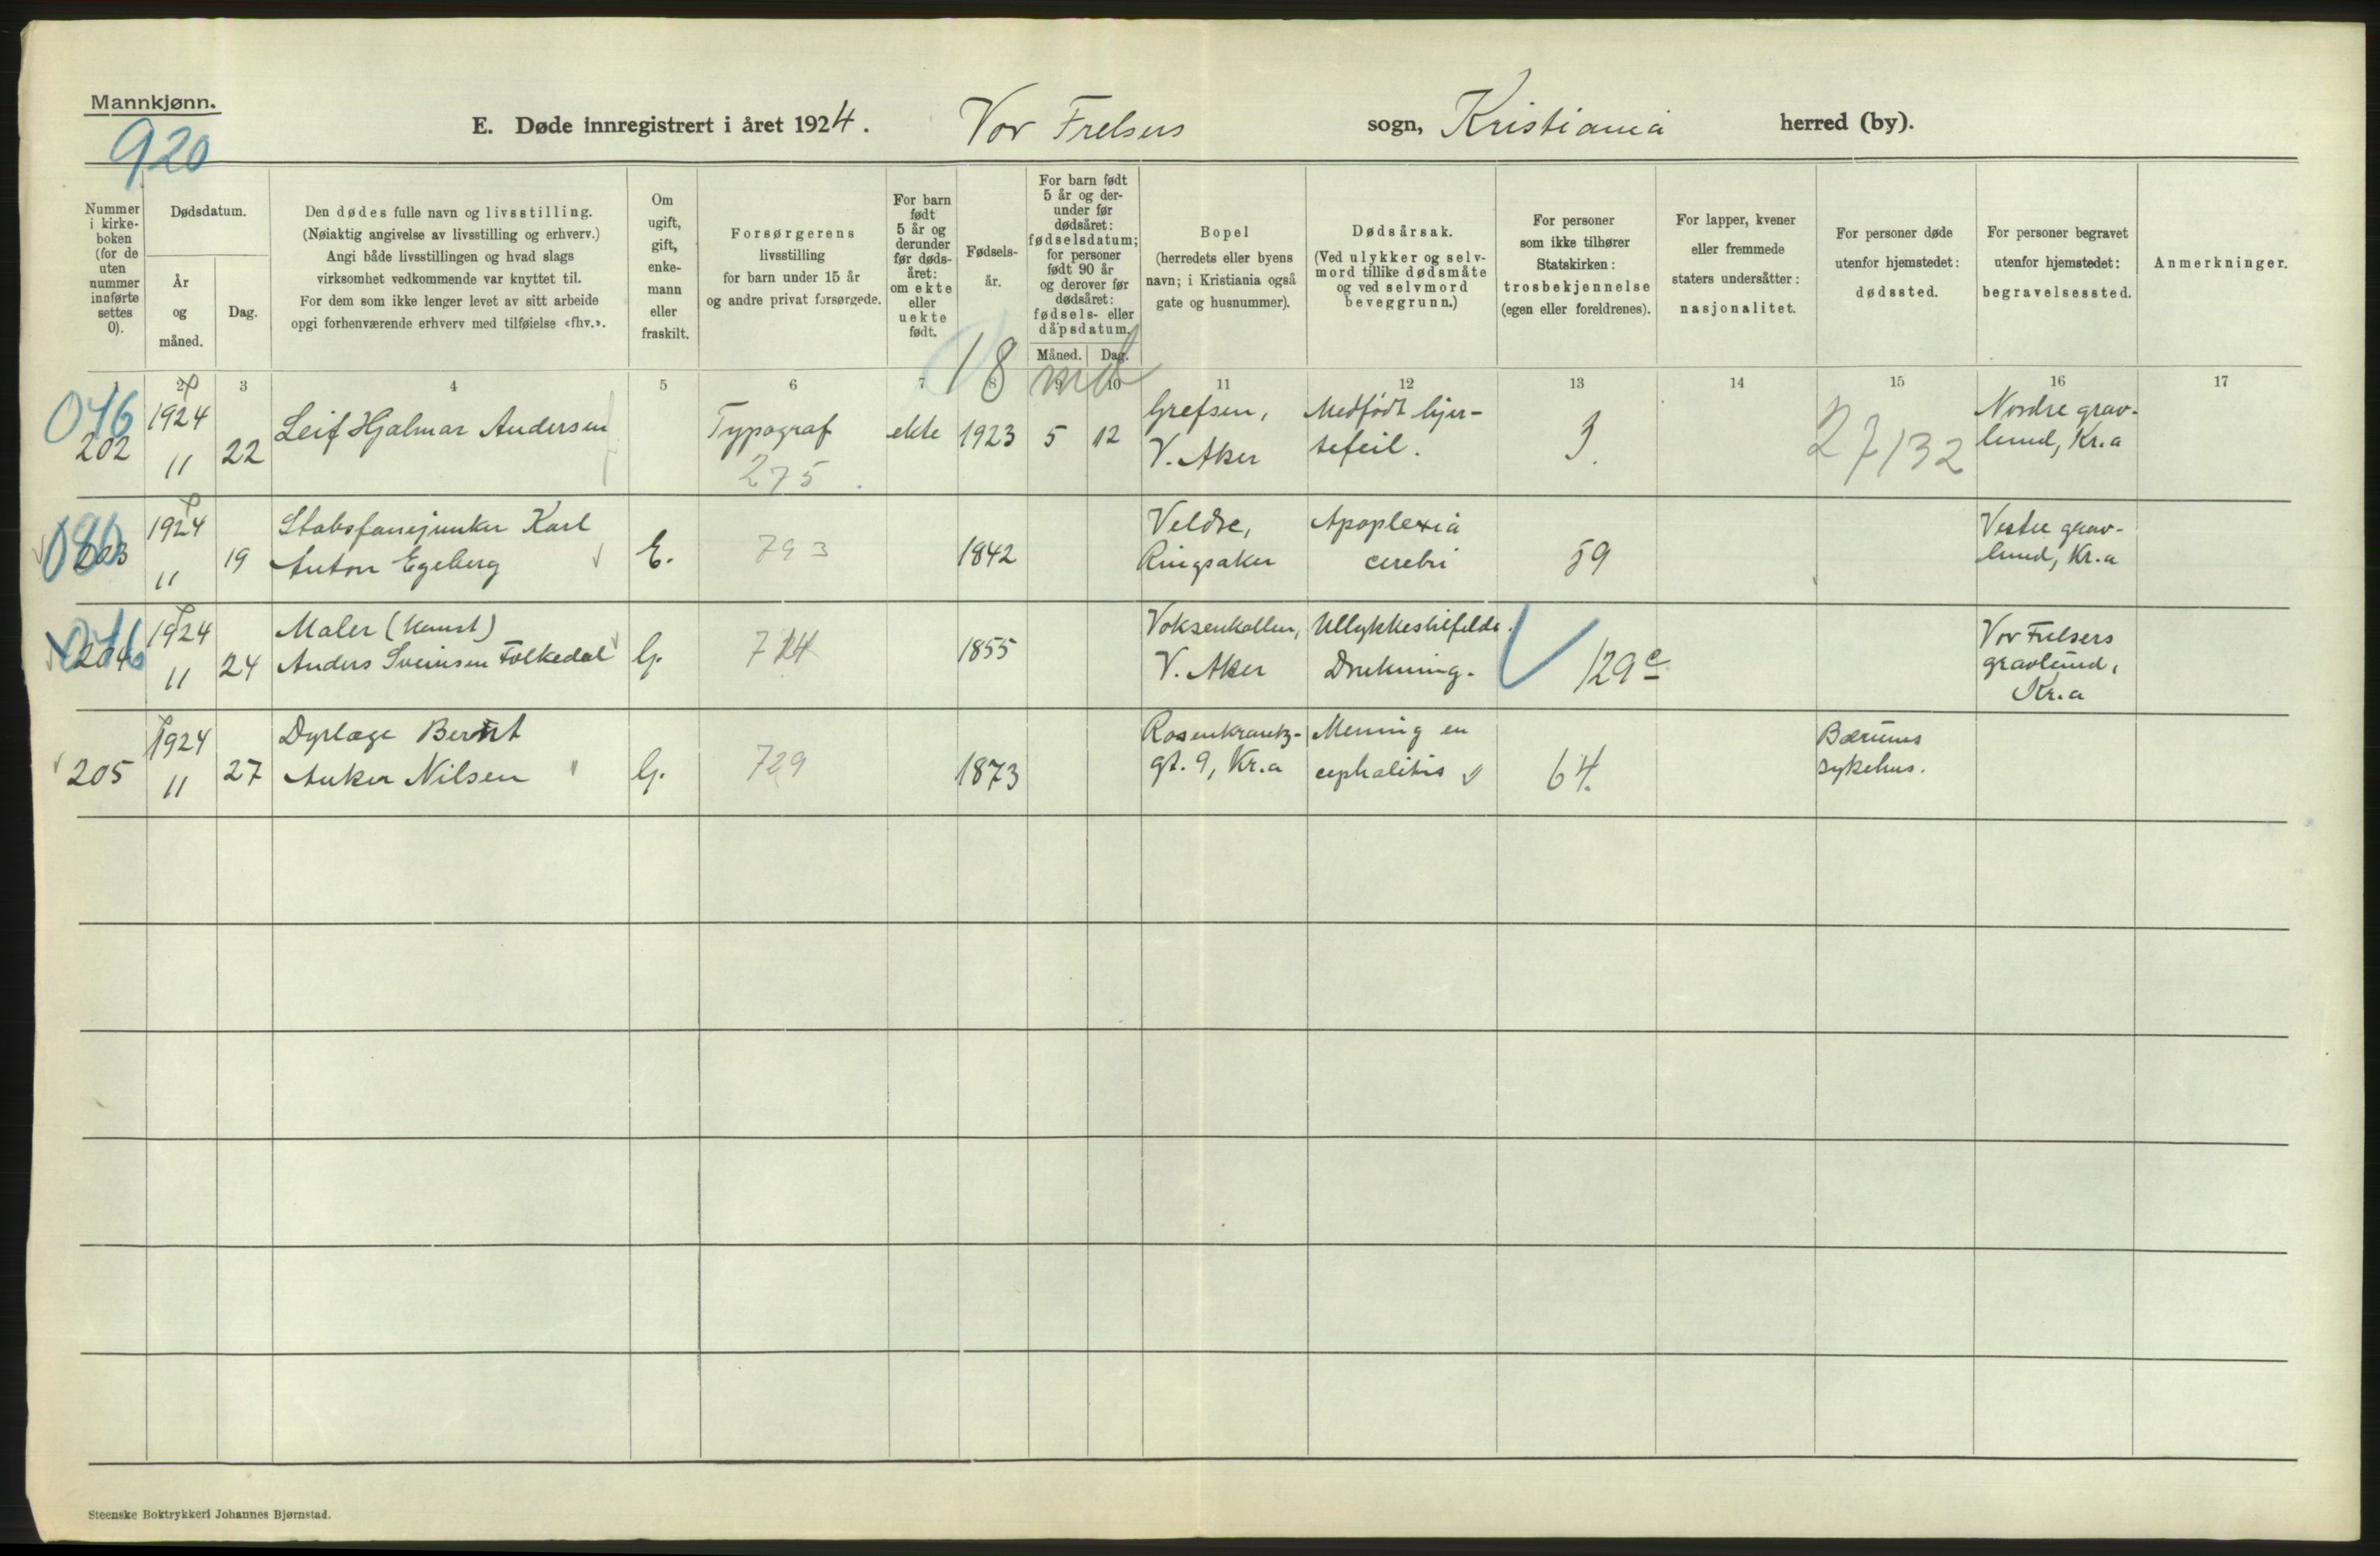 Mannkjønn.
920
E. Døde innregistrert i året 1924. Vor Frelsers sogn, Kristiania herred (by).
Nummer
i kirke-
boken
(for de
uten
nummer
innførte
settes
0).
Dødsdatum.
År
og
måned.
Dag.
Den dødes fulle navn og livsstilling.
(Nøiaktig angivelse av livsstilling og erhverv.)
Angi både livsstillingen og hvad slags
virksomhet vedkommende var knyttet til.
For dem som ikke lenger levet av sitt arbeide
opgi forhenværende erhverv med tilføielse «fhv.».
Om
ugift,
gift,
enke-
mann
eller
fraskilt.
Forsørgerens
livsstilling
for barn under 15 år
og andre privat forsørgede.
For barn
født
5 år og
derunder
før døds-
året:
om ekte
eller
uekte
født.
Fødsels-
år.
For barn født
5 år og der-
under før
dødsåret:
fødselsdatum;
for personer
født 90 år
og derover før
dødsåret:
fødsels- eller
dåpsdatum.
Måned. Dag.
Bopel
(herredets eller byens
navn; i Kristiania også
gate og husnummer).
Dødsårsak.
(Ved ulykker og selv-
mord tillike dødsmåte
og ved selvmord
beveggrunn.)
For personer
som ikke tilhører
Statskirken:
trosbekjennelse
(egen eller foreldrenes).
For lapper, kvener
eller fremmede
staters undersåtter:
nasjonalitet.
For personer døde
utenfor hjemstedet:
dødssted.
For personer begravet
utenfor hjemstedet:
begravelsessted.
Anmerkninger.
1 2 3 4 5 6 7 8 9 10 11 12 13 14 15 16 17
18 md
076
202
1924
11
22
Leif Hjalmar Andersen
Typograf
275
ekte
1923
5
12
Grefsen,
V. Aker
Medfødt hjer-
tefeil.
3
27/32
Nordre grav-
lund, Kr.a
080
203
1924
11
19
Stabsfanejunker Karl
Anton Egeberg
E.
793
1842
Veldre,
Ringsaker
Apoplexia
cerebri
59
Vestre grav-
lund, Kr.a
076
204
1924
11
24
Maler (kunst)
Anders Sveinsen Folkedal
G.
714
1855
Voksenkollen,
V. Aker
Ullykkestilfelde.
Drukning.
129 c
Vor Frelsers
gravlund,
Kr.a
205
1924
11
27
Dyrlæge Bernt
Anker Nilsen
G.
729
1873
Rosenkrantz-
gt. 9, Kr.a
Mening en
cephalitis
64.
Bærums
sykehus.
Steenske Boktrykkeri Johannes Bjørnstad.